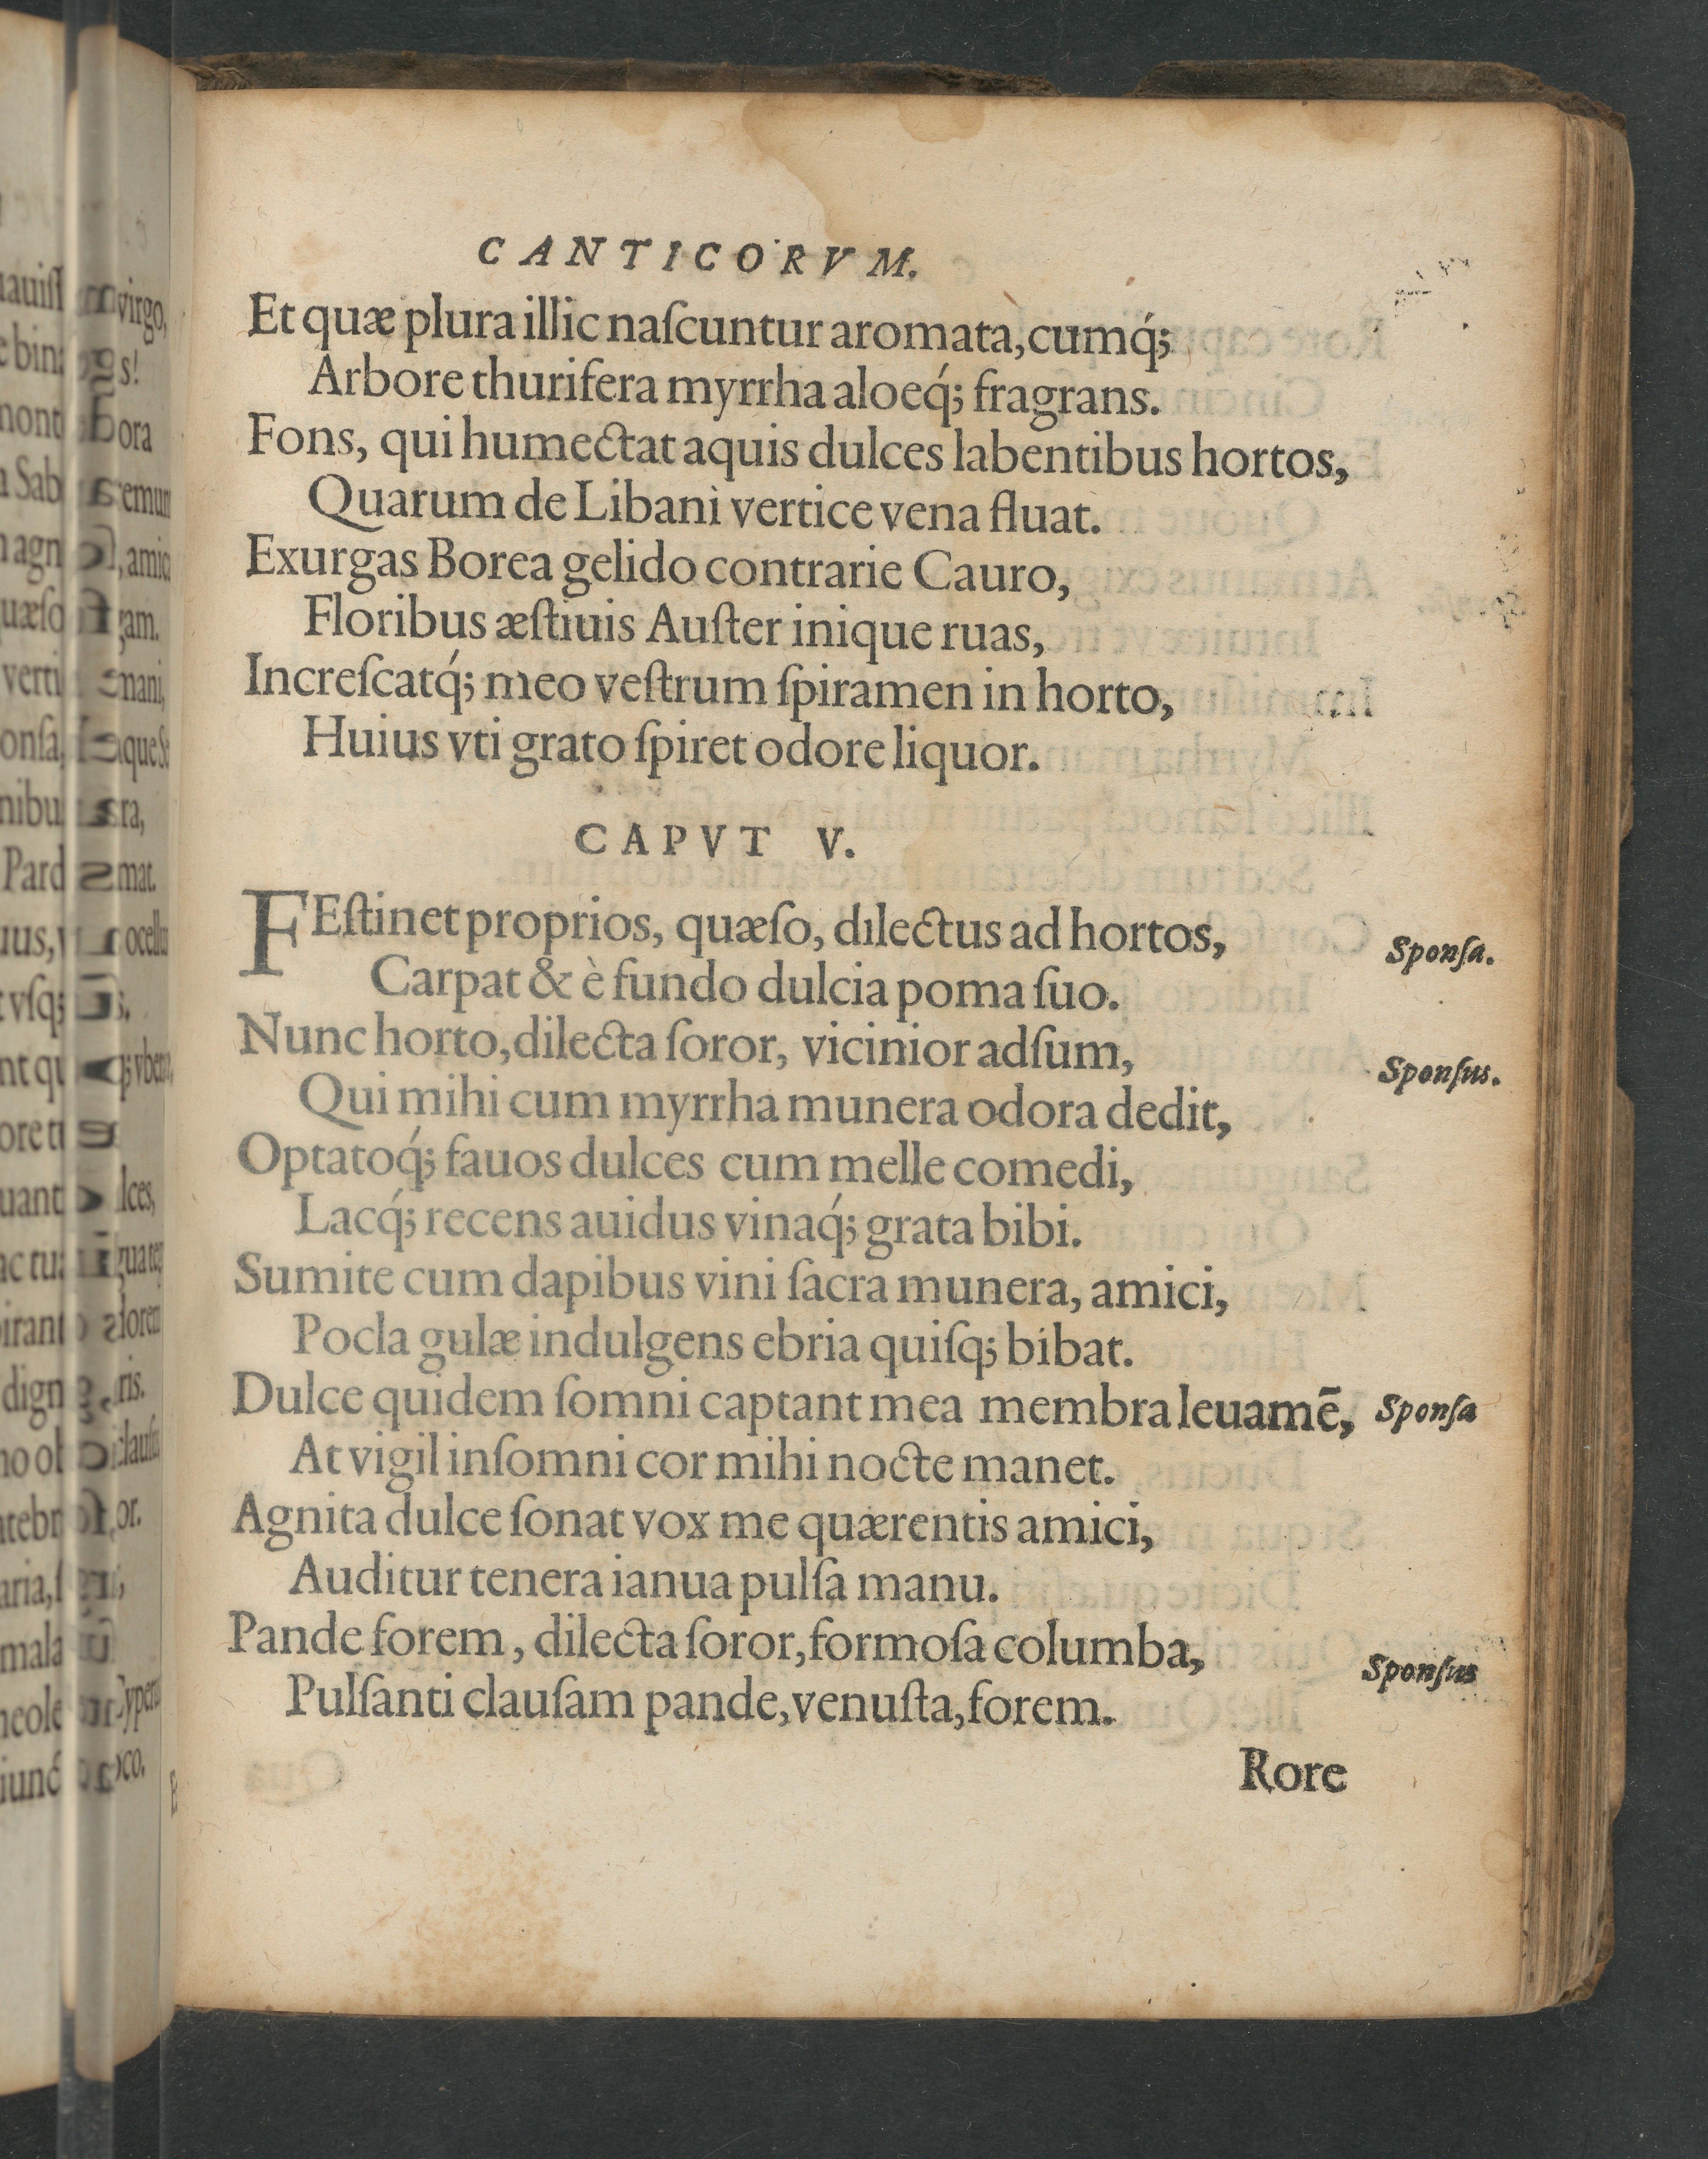 CANTICORVM.
Et quæ plura illic naſcuntur aromata, cumq́;
Arbore thurifera myrrha aloeq́; fragrans.
Fons, qui humectat aquis dulces labentibus hortos,
Quarum de Libani vertice vena fluat.
Exurgas Borea gelido contrarie Cauro,
Floribus æſtiuis Auſter inique ruas,
Increſcatq́; meo veſtrum ſpiramen in horto,
Huius vti grato ſpiret odore liquor.
CAPVT V.
FEſtinet proprios, quæſo, dilectus ad hortos,
Sponſa.
Carpat & è fundo dulcia poma ſuo.
Nunc horto, dilecta ſoror, vicinior adſum,
Sponſus.
Qui mihi cum myrrha munera odora dedit,
Optatoq́; fauos dulces cum melle comedi,
Lacq́; recens auidus vinaq́; grata bibi.
Sumite cum dapibus vini ſacra munera, amici,
Pocla gulæ indulgens ebria quiſq; bibat.
Dulce quidem ſomni captant mea membra leuamē,
Sponſa
At vigil inſomni cor mihi nocte manet.
Agnita dulce ſonat vox me quærentis amici,
Auditur tenera ianua pulſa manu.
Pande forem, dilecta ſoror, formoſa columba,
Sponſus
Pulſanti clauſam pande, venuſta, forem.
Rore